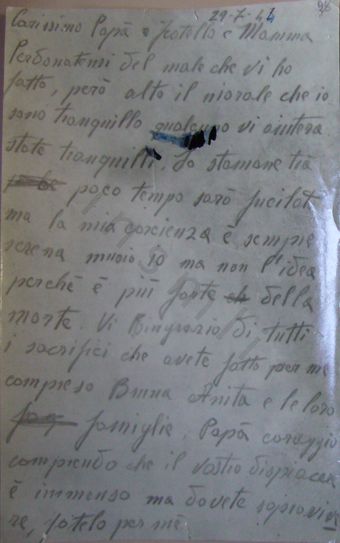 98
29-7-44
Carissimo Papà e fratello e Mamma
Perdonatemi del male che vi ho
fatto, però alto il morale che io
sono tranquillo qualcuno vi aiuterà
state tranquilli. Io stamane tra
poco tempo sarò fucilat
ma la mia coscienza è sempre
serena muoio io ma non l'idea
perchè è più forte della
morte. Vi Ringrazio di tutti
i sacrifici che avete fatto per me
compreso Bruna Anita e le loro
famiglie. Papà coraggio
comprendo che il vostro dispiacere
è immenso ma dovete sopravive
re, fatelo per me